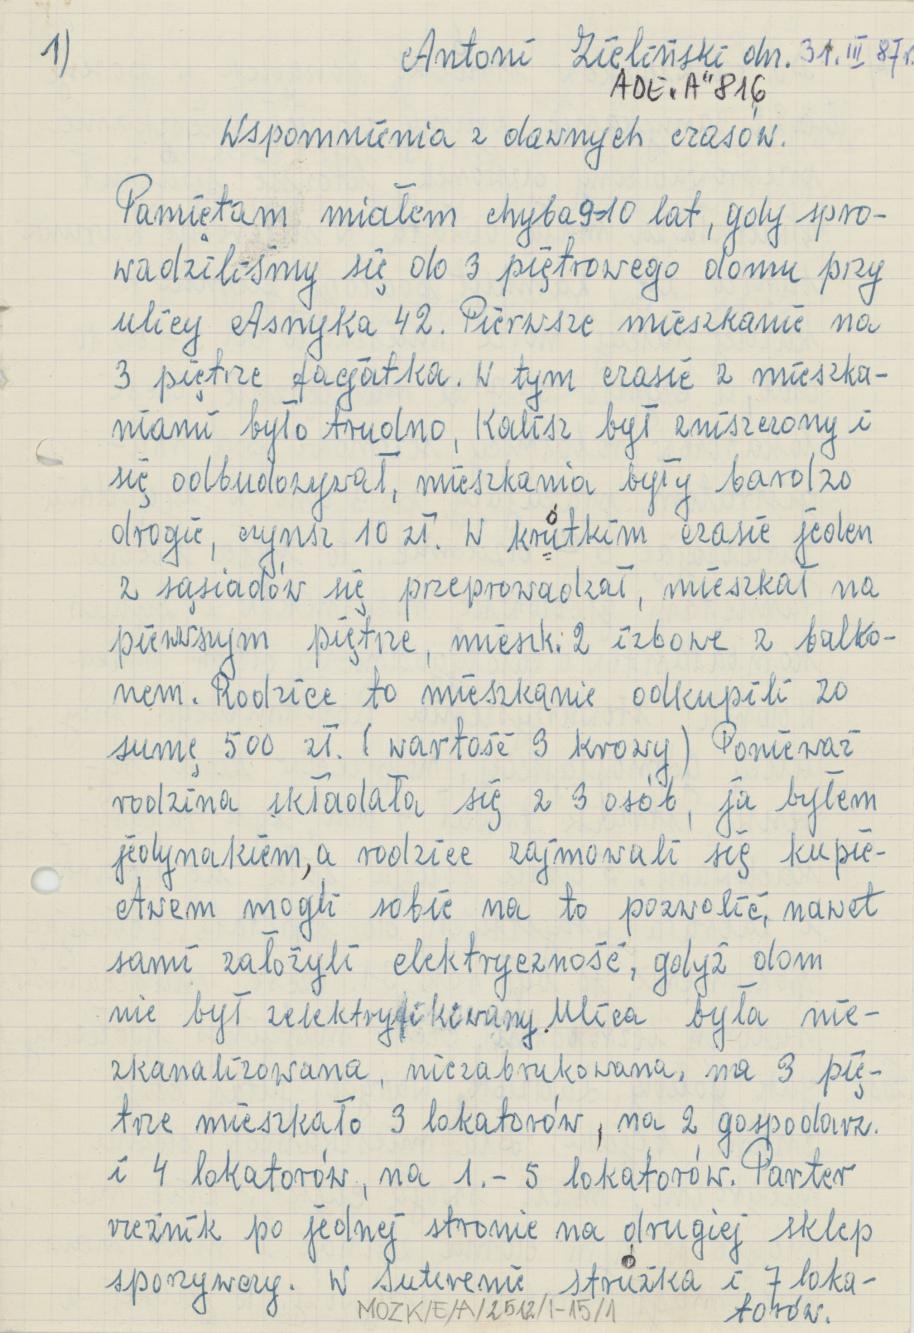 1)
Antoni Zieliński dn. 31.III 87r.
ADE „A" 816
Wspomnienia z dawnych czasów.
Pamiętam miałem chyba 9-10 lat, gdy spro-
wadziliśmy się do 3 piętrowego domu przy
ulicy Asnyka 42. Pierwsze mieszkanie na
3 piętrze facjatka. W tym czasie z mieszka-
niami było trudno, Kalisz był zniszczony i
się odbudowywał, mieszkania były bardzo
drogie, czynsz 10 zł. W krótkim czasie jeden
z sąsiadów się przeprowadzał, mieszkał na
pierwszym piętrze, mieszk. 2 izbowe z balko-
nem. Rodzice to mieszkanie odkupili zo
sumę 500 zł. (wartość 3 krowy) Ponieważ
rodzina składała się z 3 osób, ja byłem
jedynakiem, a rodzice zajmowali się kupie-
ctwem mogli sobie na to pozwolić, nawet
sami założyli elektryczność, gdyż dom
nie był zelektryfikowany. Ulica była nie-
zkanalizowana, niezabrukowana, na 3 pię-
trze mieszkało 3 lokatorów, na 2 gospodarz.
i 4 lokatorów, na 1. – 5 lokatorów. Parter
rzeźnik po jednej stronie na drugiej sklep
spożywczy. W suterenie stróżka i 7 loka-
torów.
MOZK/E/A/2512/1-15/1